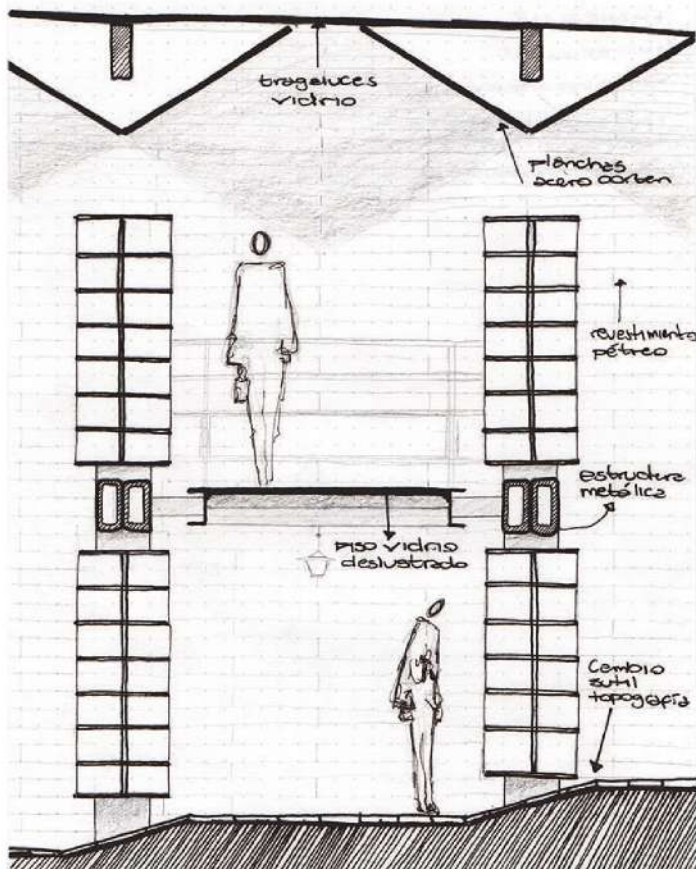 tragaluces
vidrio
planchas
acero corten
revestimiento
pétreo
estructura
metálica
piso vidrio
deslustrado
Cambio
sutil
topografía